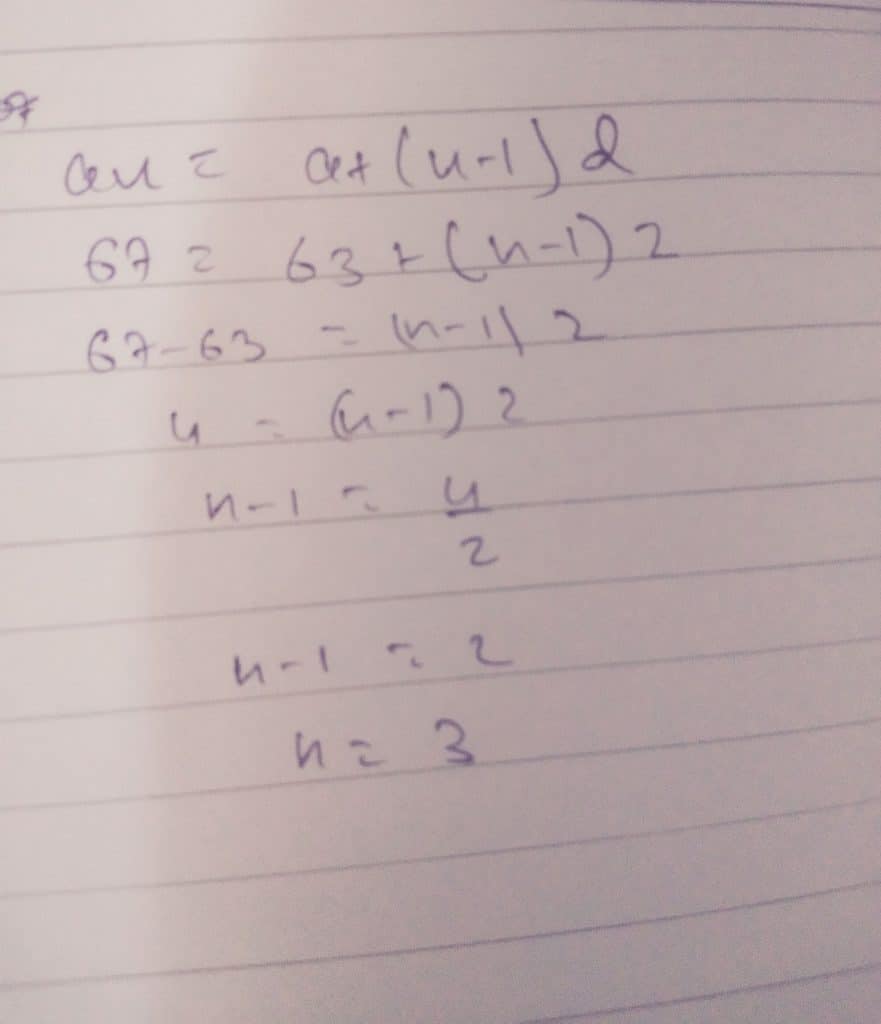 an = a+(n-1)d
67 = 63+(n-1)2
67-63 = (n-1)2
4 = (n-1)2
n-1 = 4/2
n-1 = 2
n = 3